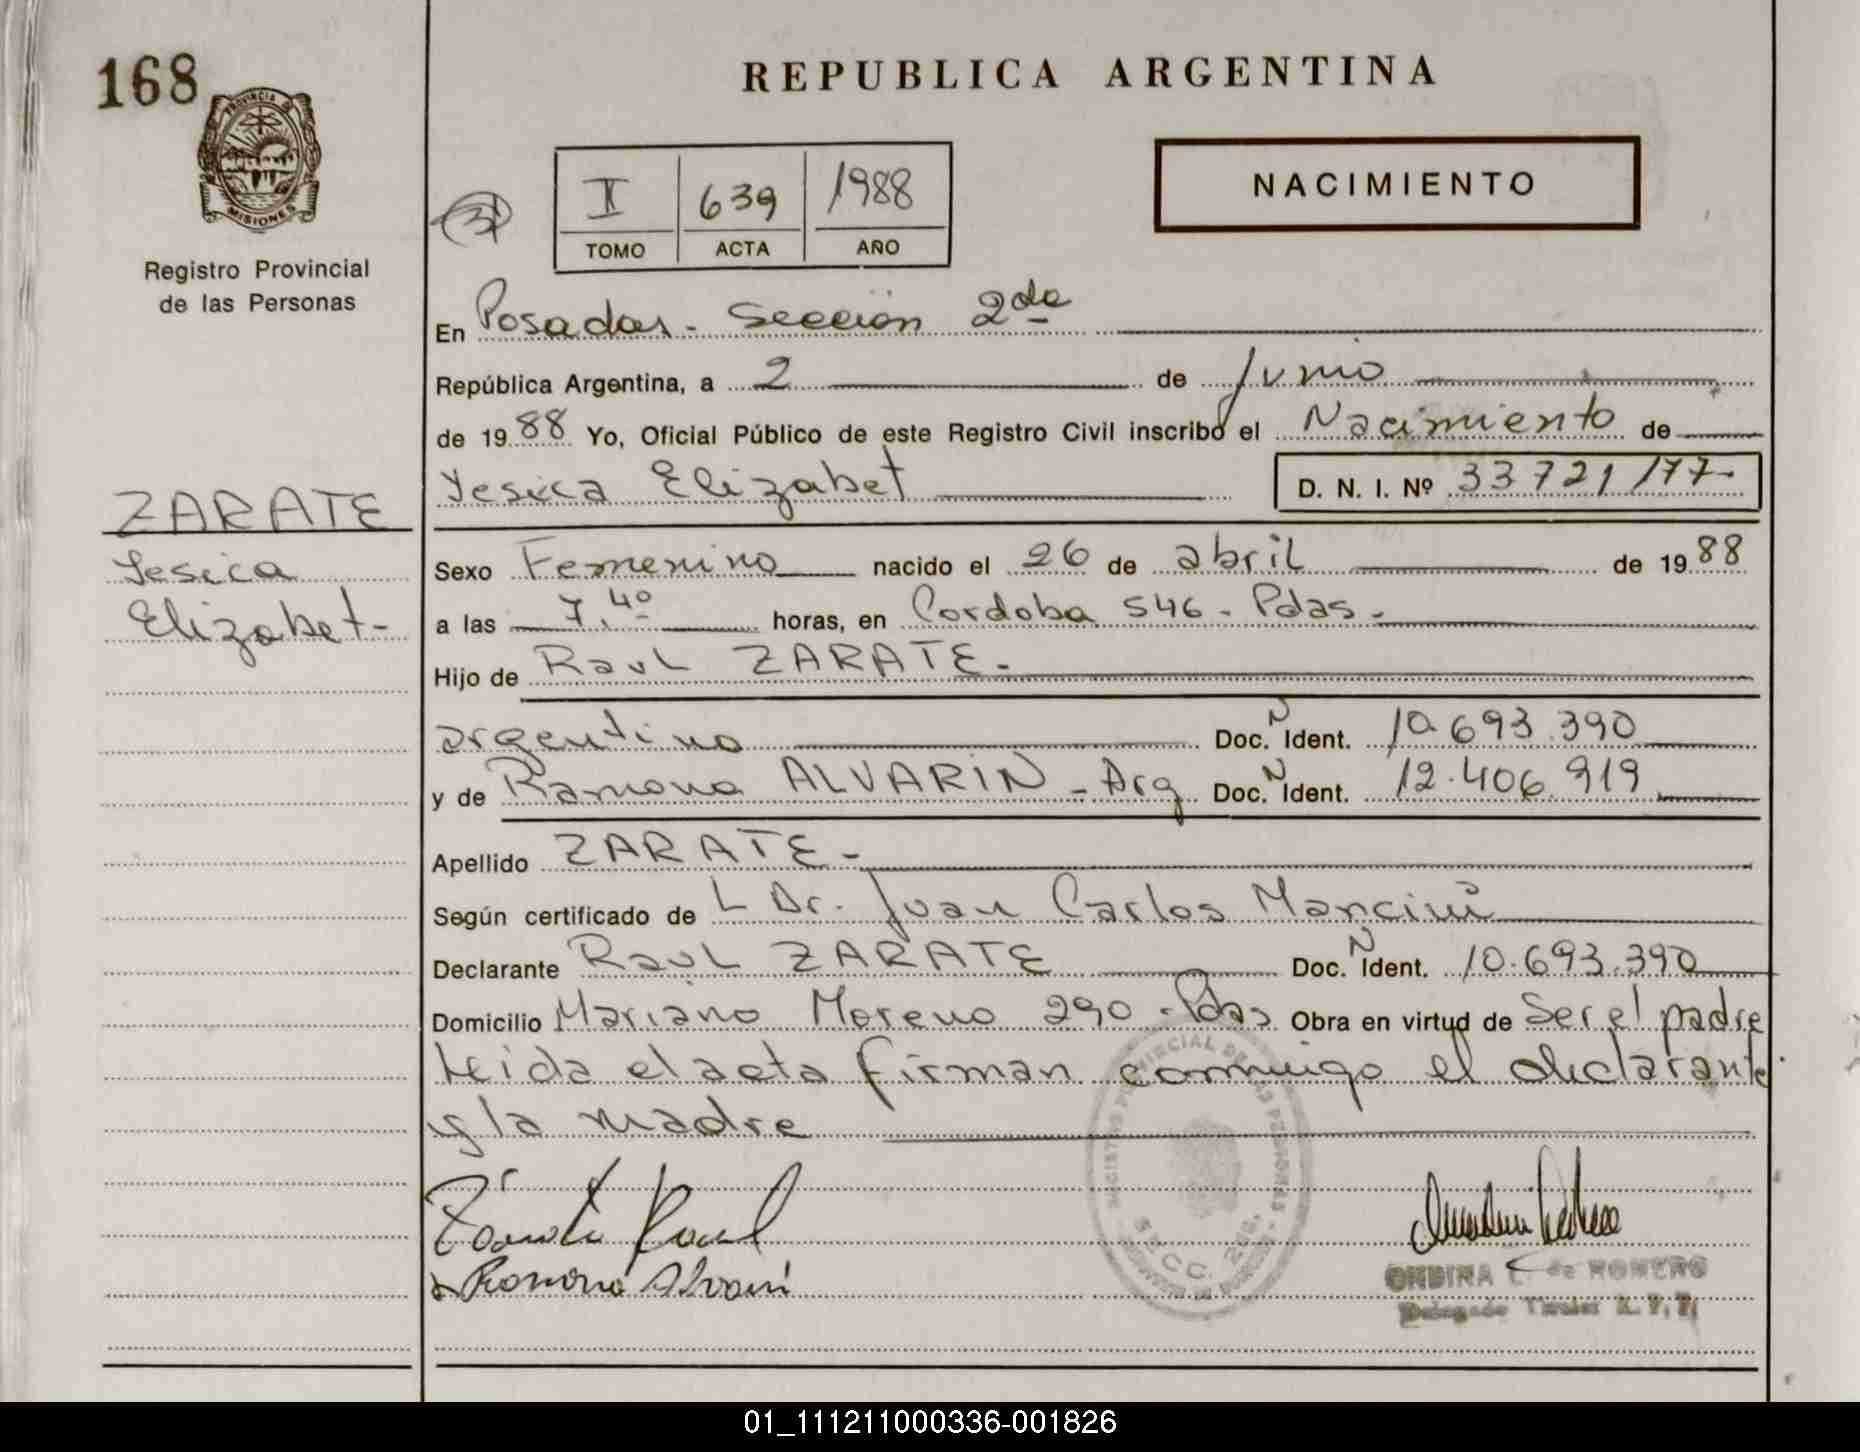 168
REPUBLICA ARGENTINA
PROVINCIA DE
MISIONES
Registro Provincial
de las Personas
I 639 1988
TOMO ACTA AÑO
NACIMIENTO
En Posadas - Sección 2da
República Argentina, a 2 de Junio
de 1988 Yo, Oficial Público de este Registro Civil inscribo el Nacimiento de
Yesica Elizabet D. N. I. Nº 33721177-
ZARATE
Yesica
Elizabet-
Sexo Femenino nacido el 26 de abril de 1988
a las 7,40 horas, en Cordoba 546 - Pdas -
Hijo de Raul ZARATE -
argentino Doc. N Ident. 10.693.390
y de Ramona ALVARIN - Arg Doc. N Ident. 12.406.919
Apellido ZARATE -
Según certificado de L Dr. Juan Carlos Mancini
Declarante Raul ZARATE Doc. N Ident. 10.693.390
Domicilio Mariano Moreno 290 - Pdas Obra en virtud de Ser el padre
Leida el acta firman conmigo el declarante
y la madre
Zarate Raul
Ramona Alvarin
SECC. 2da.
ONDINA L. de ROMERO
Delegado Titular R. P. P.
01_111211000336-001826